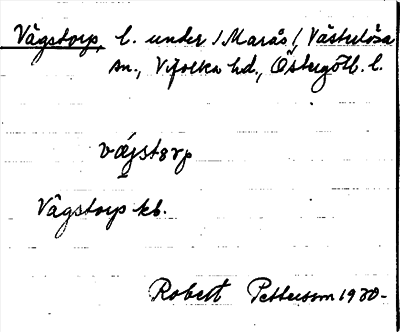 Vågstorp, l. under /Marås/, Västerlösa
sn., Vifolka hd., Östergötl. l.
vågstorp
Vågstorp kb.
Robert Pettersson 1930-